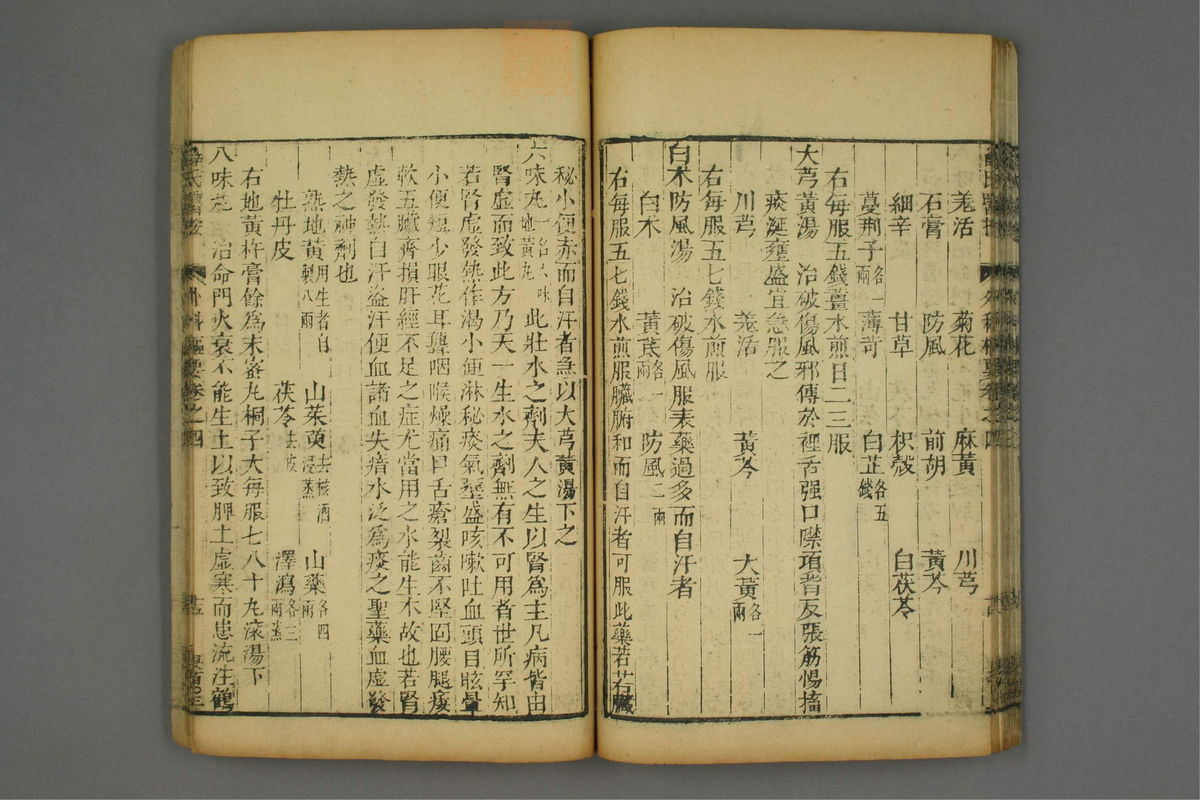 羌活　菊花　麻黃　川芎
石膏　防風　前胡　黃芩
細辛　甘草　枳殻　白茯苓
蔓荆子各一兩　薄荷　白芷各五錢
右每服五錢薑水煎日二三服
大芎黃湯　治破傷風邪傳於裡舌强口噤項背反張筋惕搐
痰涎壅盛宜急服之
川芎　羌活　黃芩　大黃各一兩
右每服五七錢水煎服
白术防風湯　治破傷風服表藥過多而自汗者
白术　黃芪各一兩　防風二兩
右每服五七錢水煎服臟腑和而自汗者可服此藥若若臟
秘小便赤而自汗者急以大芎黃湯下之
六味丸一名六味地黃丸　此壯水之劑夫人之生以腎爲主凡病皆由
腎虛而致此方乃天一生水之劑無有不可用者世所罕知
若腎虛發熱作渴小便淋秘痰氣壅盛咳嗽吐血頭目眩暈
小便短少眼花耳聾咽喉燥痛口舌瘡裂齒不堅固腰腿痿
軟五臟齊損肝經不足之症尤當用之水能生木故也若腎
虛發熱自汗盜汗便血諸血失瘖水泛爲痰之聖藥血虛發
熱之神劑也
熟地黃用生者自製八兩　山茱萸去核酒浸蒸　山藥各四兩
牡丹皮　茯苓去皮　澤瀉各三兩
右地黃杵膏餘爲末蜜丸桐子大每服七八十丸滾湯下
八味丸　治命門火衰不能生土以致脾土虛寒而患流注鶴
薛氏醫按　外科樞要卷之四